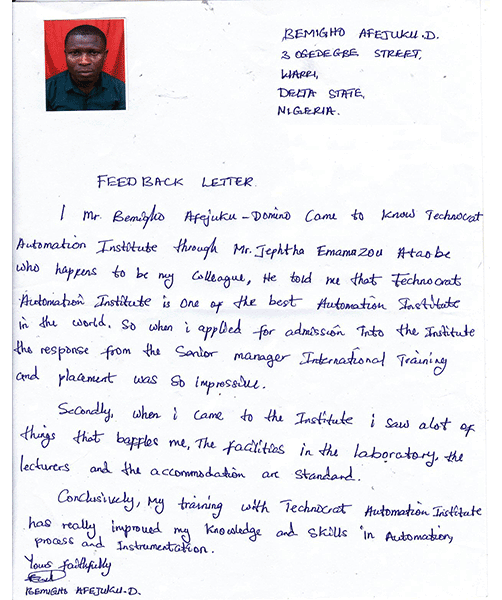 BEMIGHO AFEJUKU.D.
3 OGEDEGBE STREET,
WARRI,
DELTA STATE,
NIGERIA.
FEEDBACK LETTER.
I Mr. Bemigho Afejuku-Domino Came to know Technocrat
Automation Institute through Mr. Jephtha Emamazou Ataobe
who happens to be my Colleague, He told me that Technocrats
Automation Institute is one of the best Automation Institute
in the world. So when i applied for admission into the Institute
the response from the Senior manager International Training
and placement was so impressive.
Secondly, when i came to the Institute i saw alot of
things that baffles me, The facilities in the laboratory, the
lecturers and the accommodation are standard.
Conclusively, My training with Technocrat Automation Institute
has really improved my knowledge and skills in Automation,
process and Instrumentation.
Yours faithfully
BEMIGHO AFEJUKU.D.